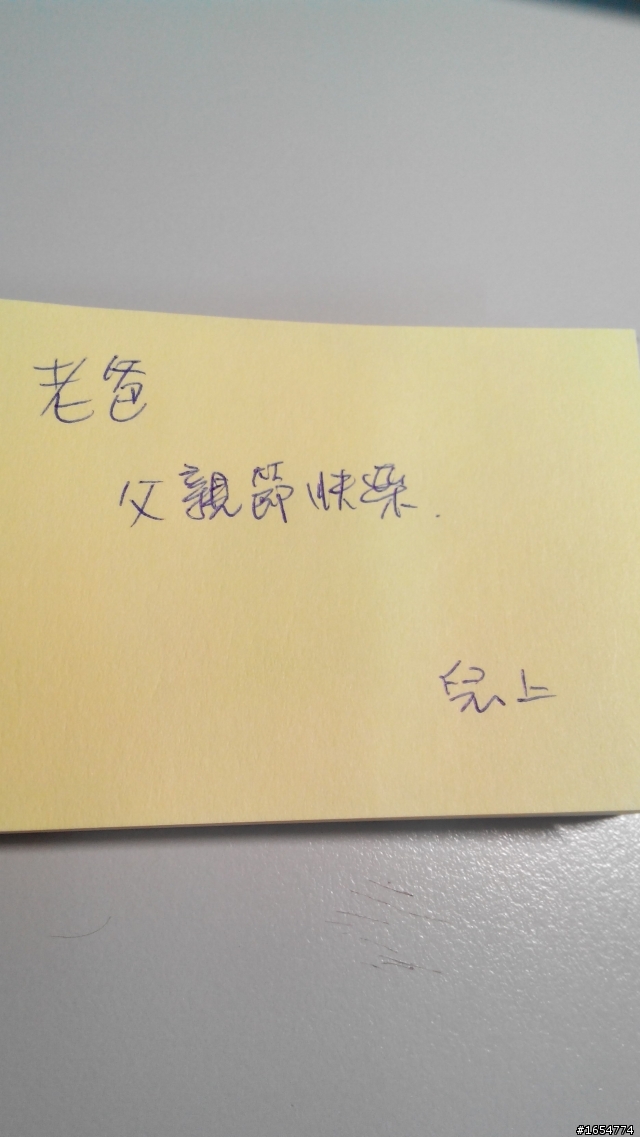 老爸
父親節快樂.
兒上
#1654774